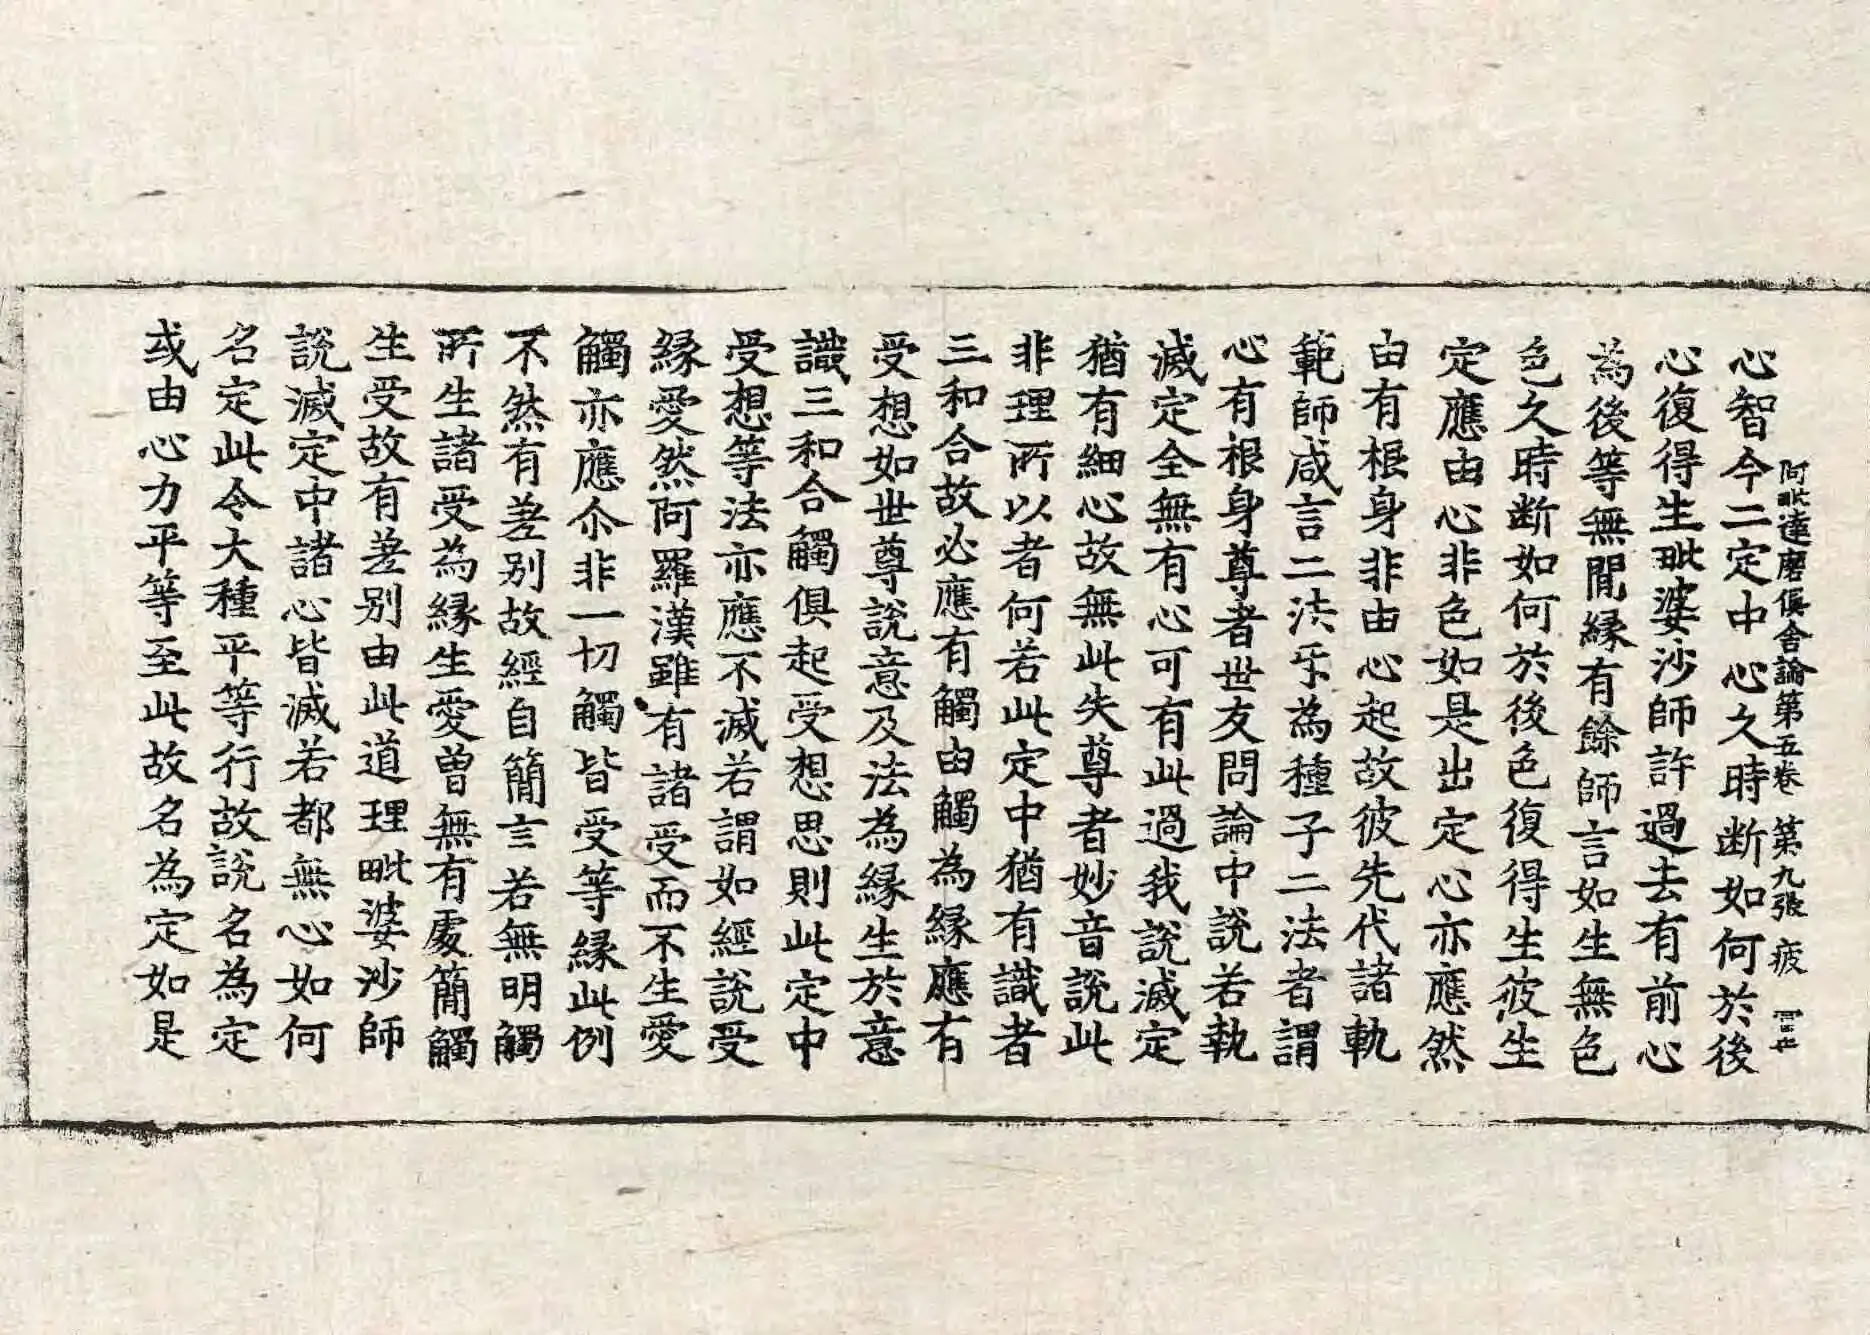 阿毗達磨俱舍論第五卷 第九張 疲
心智今二定中心久時斷如何於後
心復得生毗婆沙師許過去有前心
為後等無閒緣有餘師言如生無色
色久時斷如何於後色復得生彼生
定應由心非色如是出定心亦應然
由有根身非由心起故彼先代諸軌
範師咸言二法㸦為種子二法者謂
心有根身尊者世友問論中說若執
滅定全無有心可有此過我說滅定
猶有細心故無此失尊者妙音說此
非理所以者何若此定中猶有識者
三和合故必應有觸由觸為緣應有
受想如世尊說意及法為緣生於意
識三和合觸俱起受想思則此定中
受想等法亦應不滅若謂如經說受
緣愛然阿羅漢雖有諸受而不生愛
觸亦應尒非一切觸皆受等緣此例
不然有差別故經自簡言若無明觸
所生諸受為緣生愛曾無有處簡觸
生受故有差別由此道理毗婆沙師
說滅定中諸心皆滅若都無心如何
名定此令大種平等行故說名為定
或由心力平等至此故名為定如是